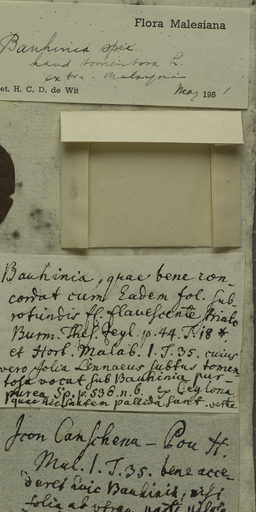 Flora Malesiana
Bauhinia spec.
haud tomentosa L.
extra-Malaysia
et. H. C. D. de Wit May 1951
Bauhinia, quae bene con-
cordat cum Eadem fol. sub
rotundis fl. flavescente striato
Burm. Thes. Zeyl. p. 44. T. 18 *.
et Hort. Malab. I. T. 35. cuius
vero folia Linnaeus subtus tomen
tosa vocat sub Bauhinia pur-
purea Sp. p. 536. n. 6. ex Ceylona
quae hic saltem pallida sunt.
Icon Canschena - Pou H.
Mal. I. T. 35. bene acce-
deret huic Bauhiniae, nisi
folia ab utraq parte